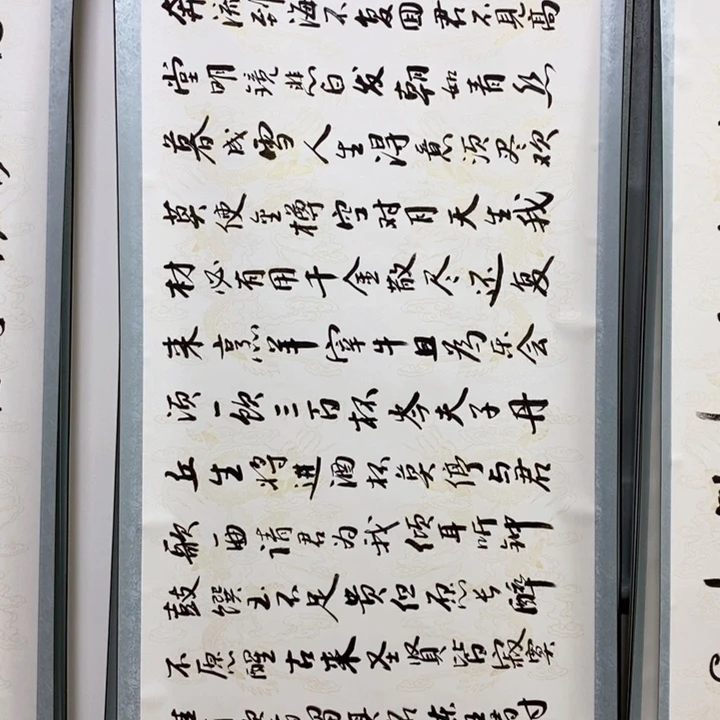 奔流到海不复回君不见高
堂明镜悲白发朝如青丝
暮成雪人生得意须尽欢
莫使金樽空对月天生我
材必有用千金散尽还复
来烹羊宰牛且为乐会
须一饮三百杯岑夫子丹
丘生将进酒杯莫停与君
歌一曲请君为我倾耳听钟
鼓馔玉不足贵但愿长醉
不愿醒古来圣賢皆寂寞